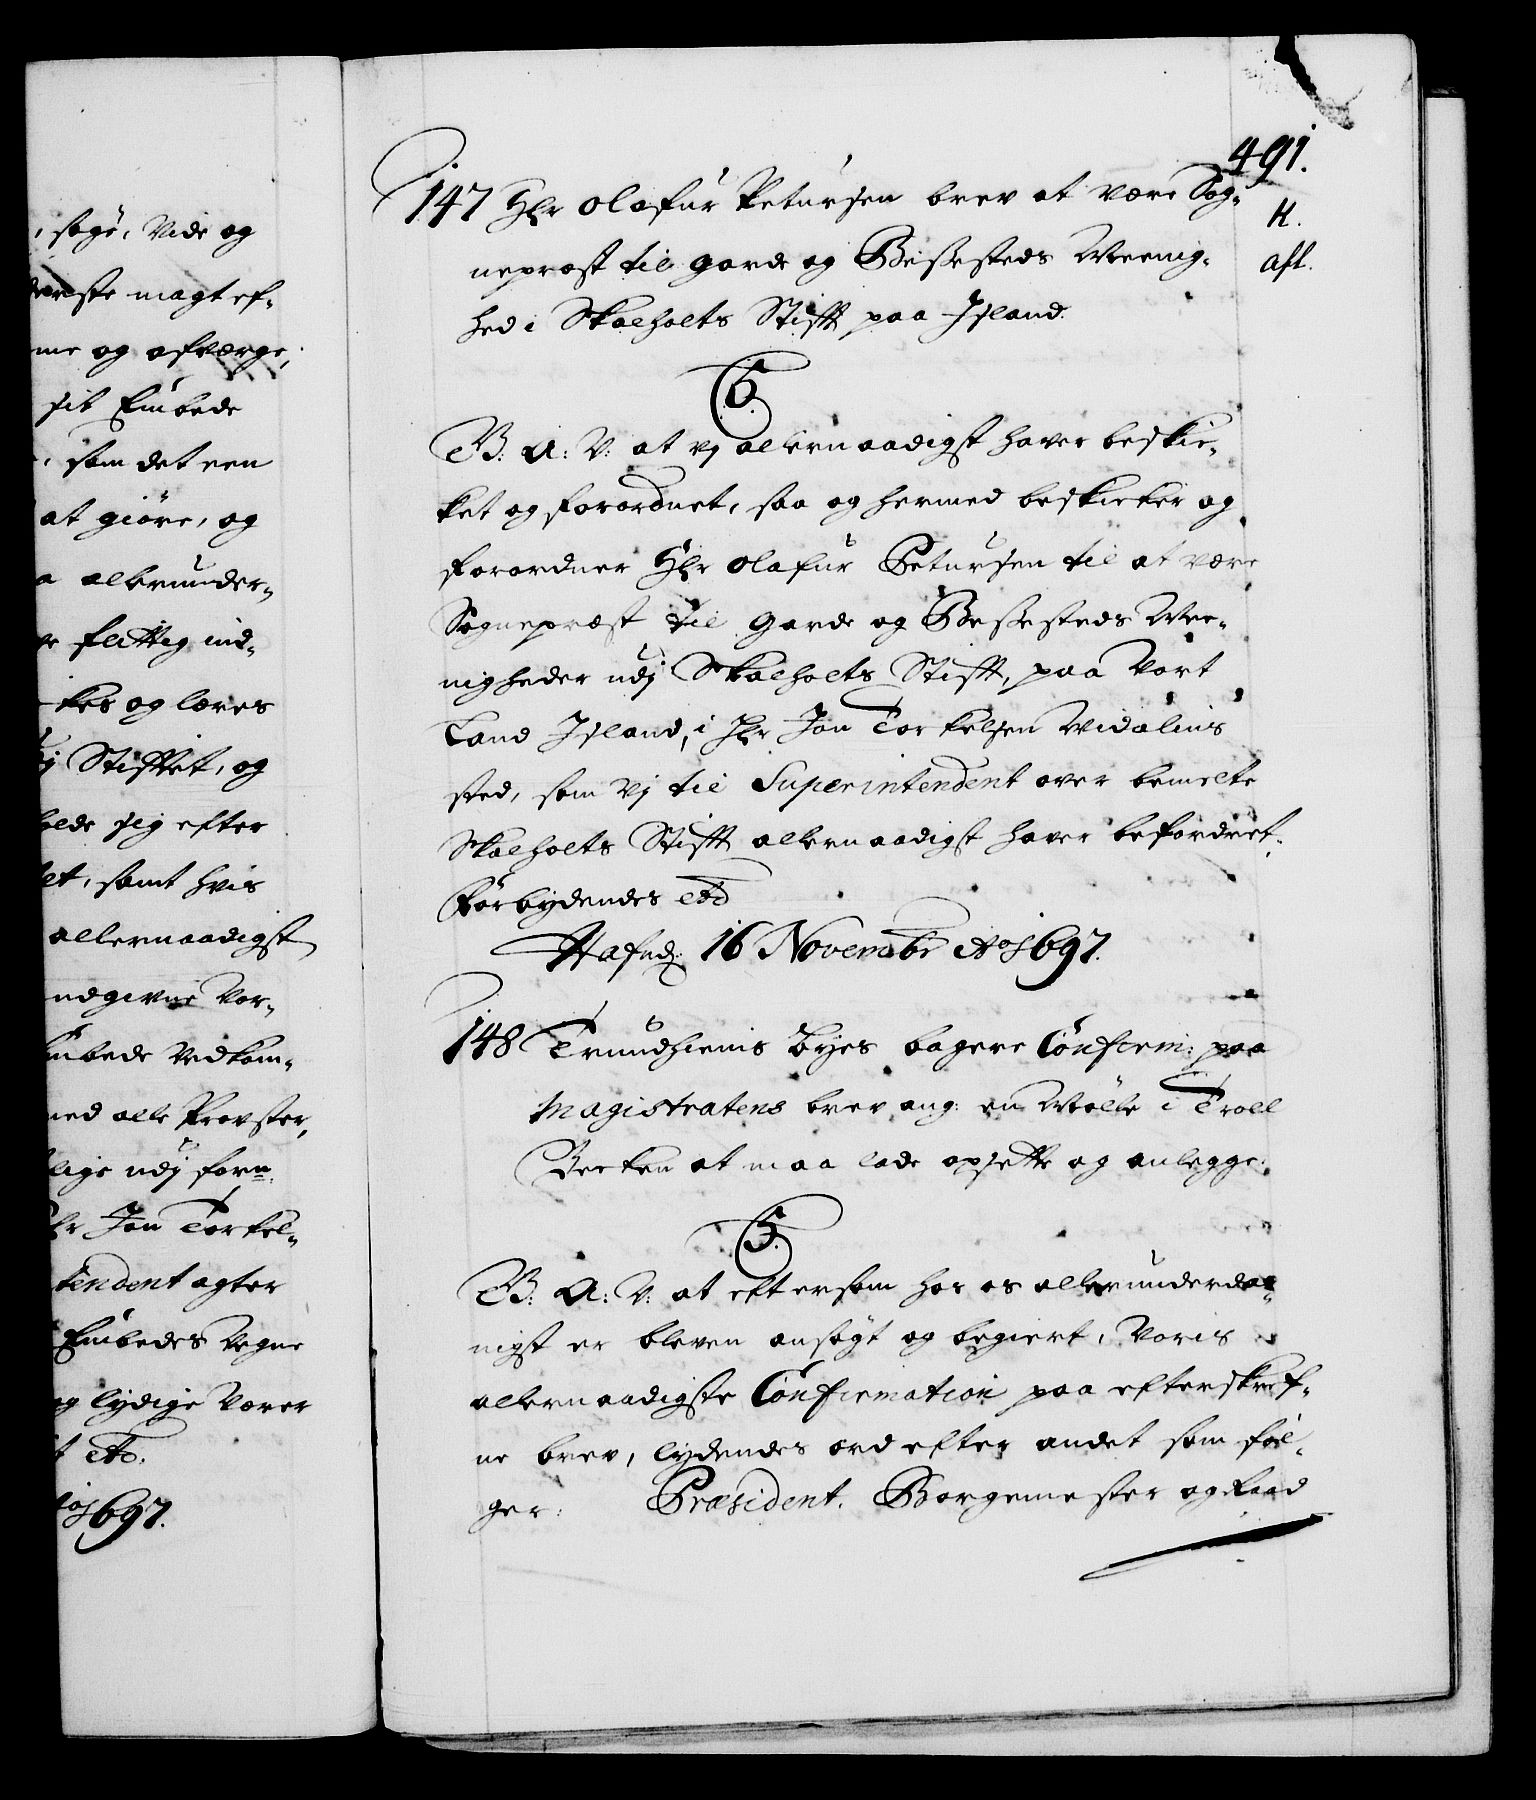 , søge, Vide og
derste magt ef-
me og afværge,
sit Embede
, som det een
at giöre, og
a allerunder-
flittig ind-
kes og læres
j Stifftet, og
holde sig efter
et, samt hvis
allernaadigst
udgivne Vor-
Embede Vedkom-
med alle Provster,
lige udj forn.
Hr Jon Torkel-
tendent agter
Embedes Vegne
og lydige Verer
etc.
1697.
491.
147 Hr Olafur Petursen brev at være Sog-
K.
neprest til Garde og Bessesteds Meenig-
afl.
hed i Skalholts Stifft paa Island.
C5.
G. A: V: at vj allernaadigst haver beskic-
ket og forordnet, saa og hermed beskicker og
forordner Hr Olafur Petursen til at være
Sogneprest til Garde og Bessesteds Mee-
nigheder udj Skalholts Stifft, paa Vort
Land Island, i Hr Jon Torkelsen Widalins
sted, som Vj til Superintendent over bemelte
Skalholts Stifft allernaadigst haver befordret.
Forbydendes etc
Hafnæ. 16 Novembr Ao 1697.
148 Trundhiems Byes bagere Confirm: paa
Magistratens brev ang: en Mölle i Troll
Becken at maa lade opsette og anlegge.
C5.
G. A: V: at eftersom hos os allerunderda-
nigst er bleven ansøgt og begiert, Voris
allernaadigste Confirmation paa efterskref-
ne brev, lydendes ord efter andet som föl-
ger: Præsident, Borgemester og Raad